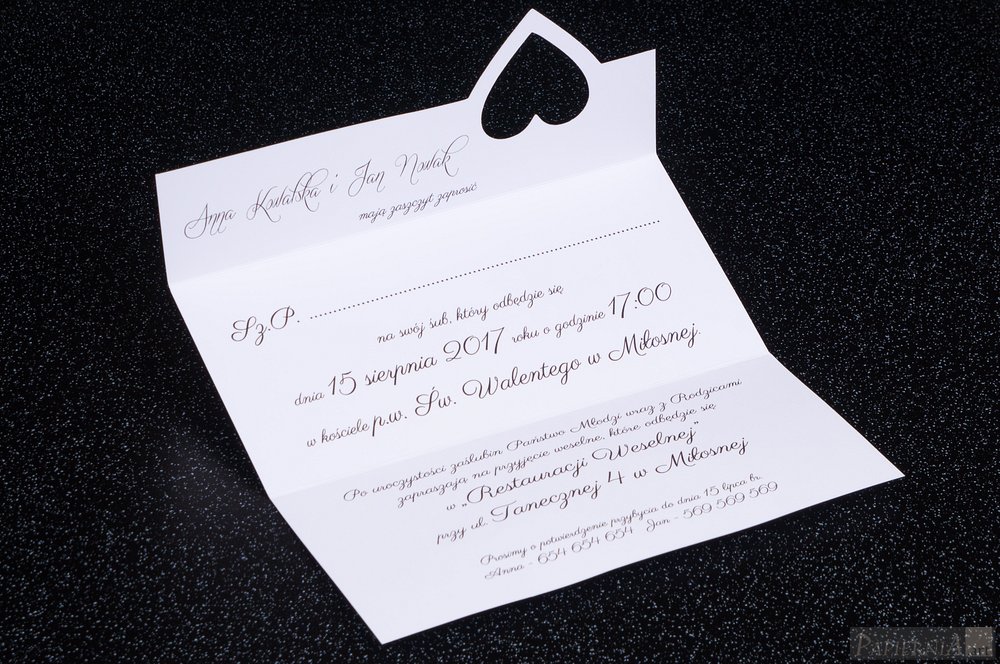 Anna Kowalska i Jan Nowak
mają zaszczyt zaprosić
Sz.P. ........................................................................
na swój ślub, który odbędzie się
dnia 15 sierpnia 2017 roku o godzinie 17:00
w kościele p.w. Św. Walentego w Miłosnej.
Po uroczystości zaślubin Państwo Młodzi wraz z Rodzicami
zapraszają na przyjęcie weselne, które odbędzie się
w „Restauracji Weselnej"
przy ul. Tanecznej 4 w Miłosnej
Prosimy o potwierdzenie przybycia do dnia 15 lipca br.
Anna - 654 654 654 Jan - 569 569 569
PAPIERNIA